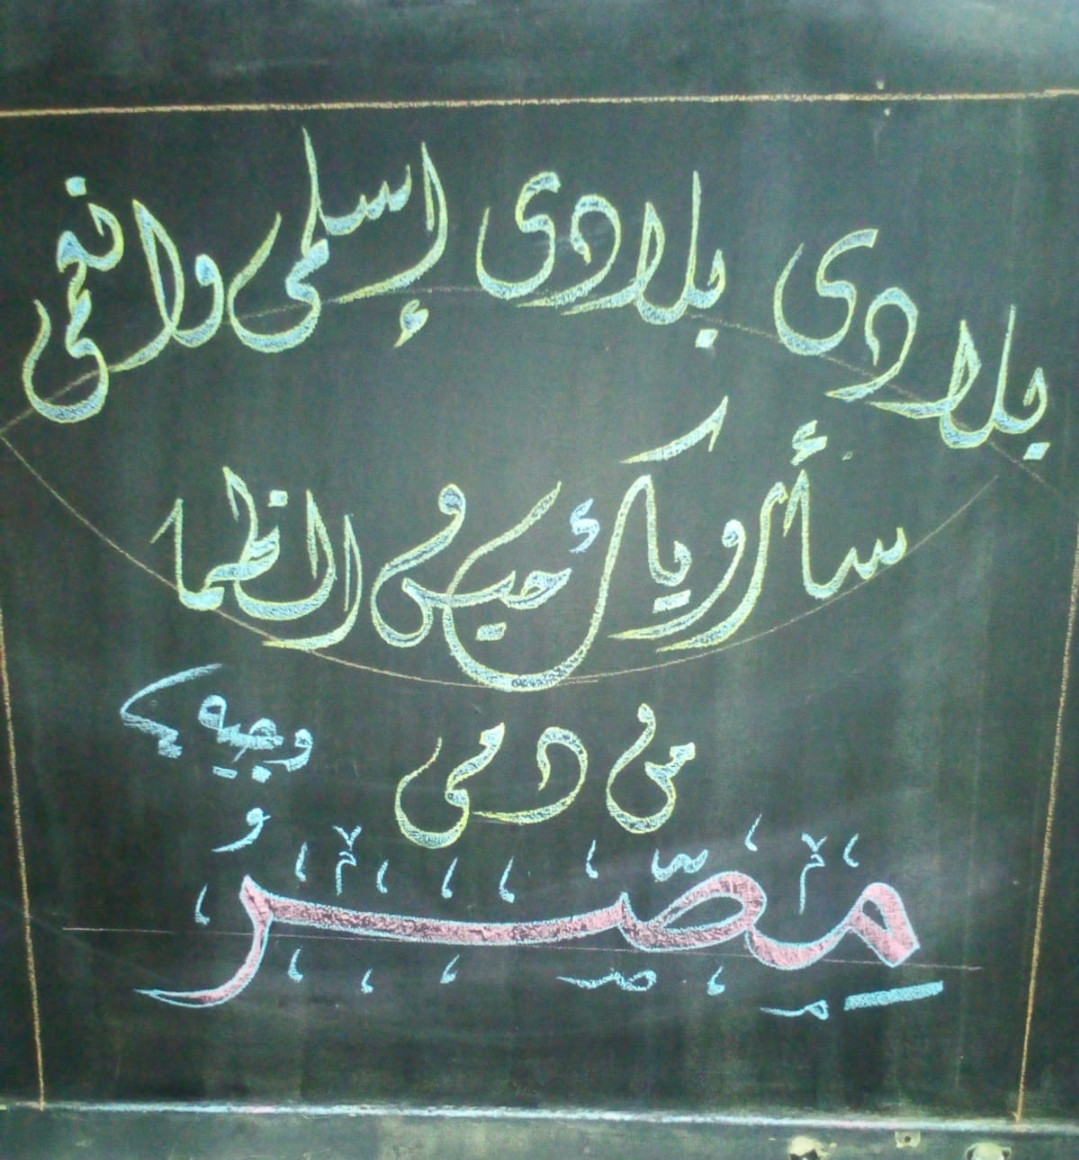 بلادى بلادى إسلمى وانعمى
سأرويك حين الظما
من دمى
وجيه
مِصْرُ